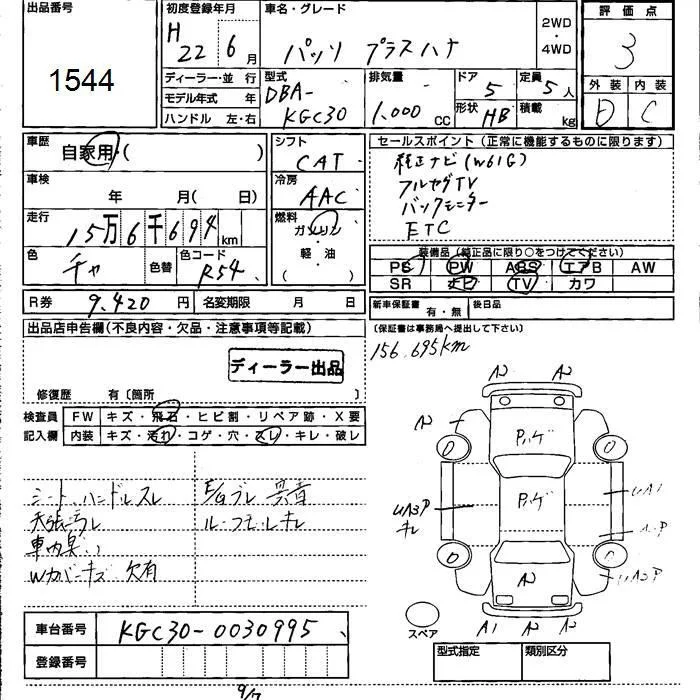 出品番号
1544
初度登録年月
H
22 6 月
車名・グレード
パッソ プラスハナ
2WD
・
4WD
評価点
3
外装 内装
D C
ディーラー・並 行
モデル年式 年
ハンドル 左・右
型式
DBA-
KGC30
排気量
1,000 cc
ドア
5
形状
HB
定員
5 人
積載
kg
車歴
自家用・( )
車検
年 月( 日)
走行
15万6千694 km
色
チャ
色替
色コード
R54
シフト
CAT
冷房
AAC
燃料
ガソリン
・
軽・油
( )
セールスポイント(正常に機能するものに限ります)
純正ナビ(W61G)
フルセグTV
バックモニター
ETC
装備品(純正品に限り○をつけてください)
PS PW ABS エアB AW
SR ナビ TV カワ
R券 9,420 円
名変期限 月 日
新車保証書
有・無
後日品
(保証書は事務局へ提出して下さい)
出品店申告欄(不良内容・欠品・注意事項等記載)
ディーラー出品
修復歴 有〔箇所 〕
156,695km
検査員
記入欄
FW キズ・飛石・ヒビ割・リペア跡・X要
内装 キズ・汚れ・コゲ・穴・スレ・キレ・破レ
シート、ハンドルスレ
天張汚レ
車内臭い
Wカバーキズ 欠有
E/Gブレ 異音
A2 A2
A2
Pッゲ
Pッゲ
UA3P
キレ
UA1
A2P
A2
UA2P
A1 A2 A2
スペア
車台番号 KGC30-0030995
登録番号
型式指定 類別区分
9/7